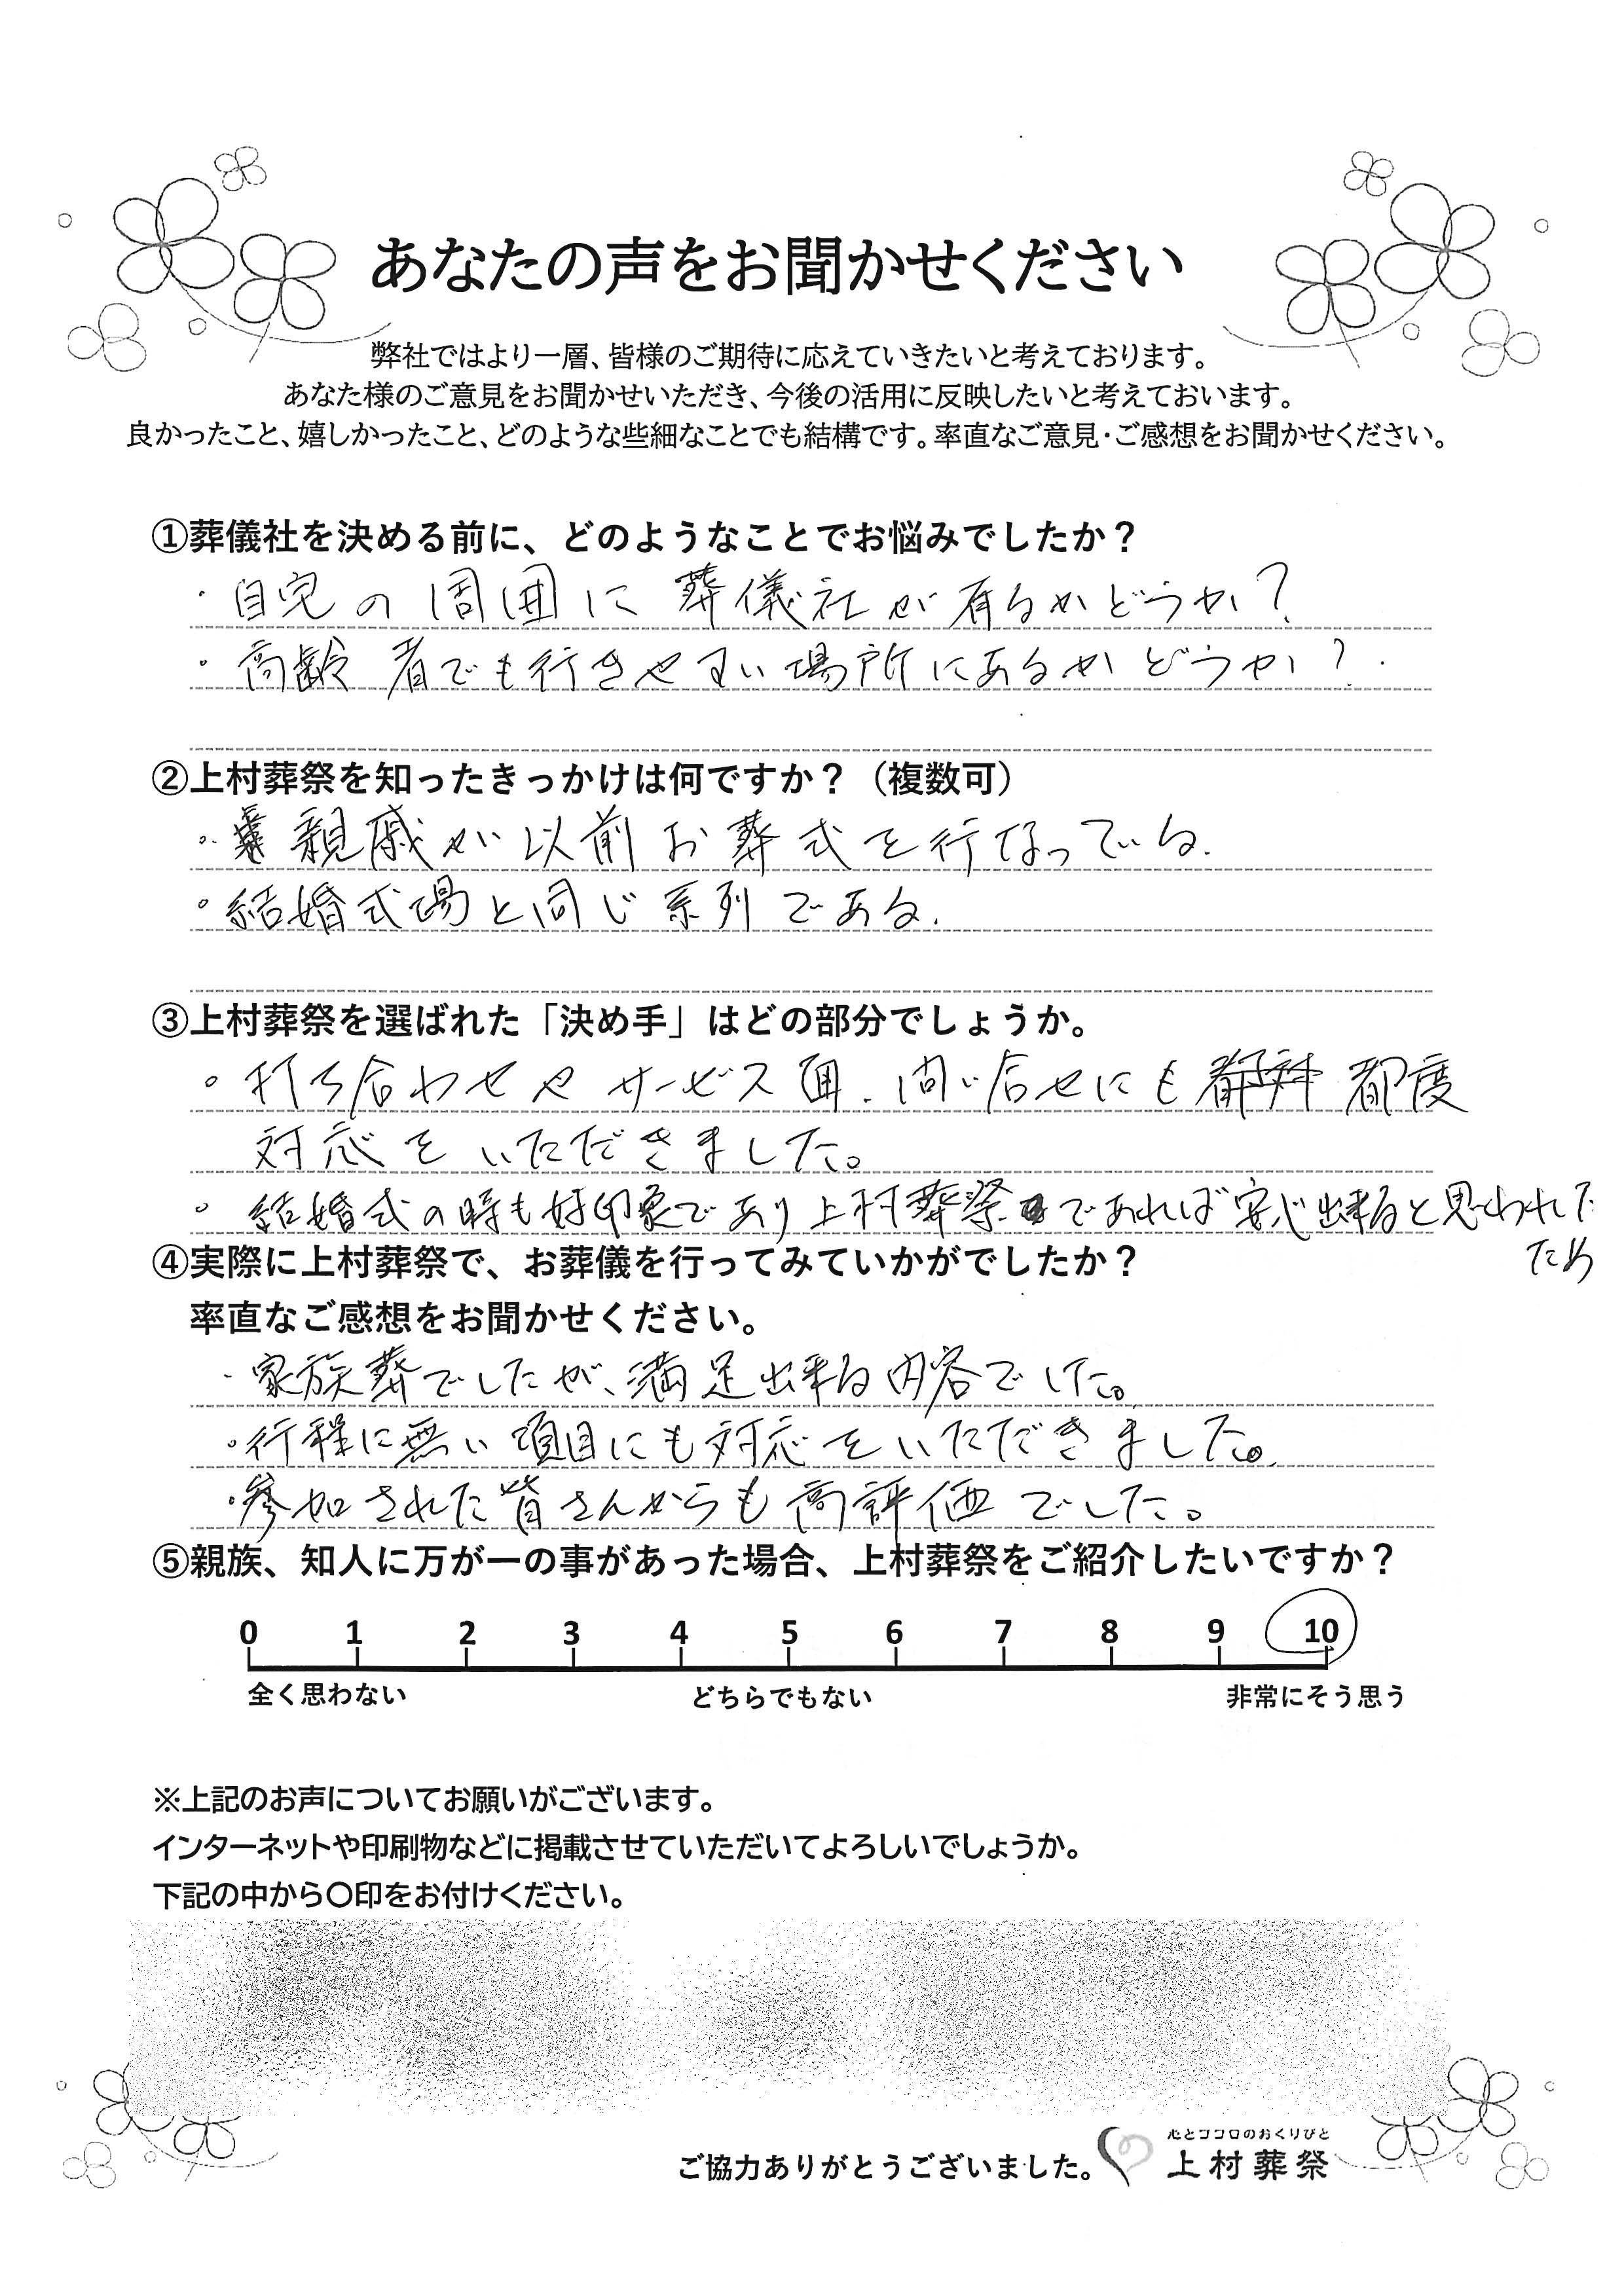 あなたの声をお聞かせください
弊社ではより一層、皆様のご期待に応えていきたいと考えております。
あなた様のご意見をお聞かせいただき、今後の活用に反映したいと考えておいます。
良かったこと、嬉しかったこと、どのような些細なことでも結構です。率直なご意見・ご感想をお聞かせください。
①葬儀社を決める前に、どのようなことでお悩みでしたか？
・自宅の周囲に葬儀社が有るかどうか？
・高齢者でも行きやすい場所にあるかどうか？
②上村葬祭を知ったきっかけは何ですか？（複数可）
・親戚が以前お葬式を行なっている.
・結婚式場と同じ系列である.
③上村葬祭を選ばれた「決め手」はどの部分でしょうか。
・打ち合わせやサービス面、問い合せにも都度
対応をいただきました。
・結婚式の時も好印象であり上村葬祭であれば安心出来ると思われた
ため
④実際に上村葬祭で、お葬儀を行ってみていかがでしたか？
率直なご感想をお聞かせください。
・家族葬でしたが、満足出来る内容でした。
・行程に無い項目にも対応をいただきました。
・参加された皆さんからも高評価でした。
⑤親族、知人に万が一の事があった場合、上村葬祭をご紹介したいですか？
0 1 2 3 4 5 6 7 8 9 10
全く思わない どちらでもない 非常にそう思う
※上記のお声についてお願いがございます。
インターネットや印刷物などに掲載させていただいてよろしいでしょうか。
下記の中から〇印をお付けください。
心とココロのおくりびと
ご協力ありがとうございました。 上村葬祭